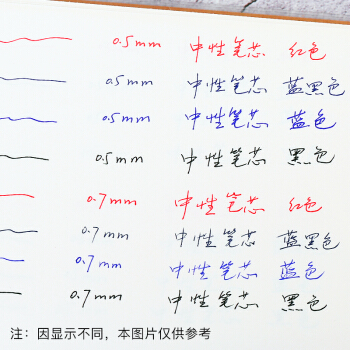 0.5mm 中性笔芯 红色
0.5mm 中性笔芯 蓝黑色
0.5mm 中性笔芯 蓝色
0.5mm 中性笔芯 黑色
0.7mm 中性笔芯 红色
0.7mm 中性笔芯 蓝黑色
0.7mm 中性笔芯 蓝色
0.7mm 中性笔芯 黑色
注：因显示不同，本图片仅供参考